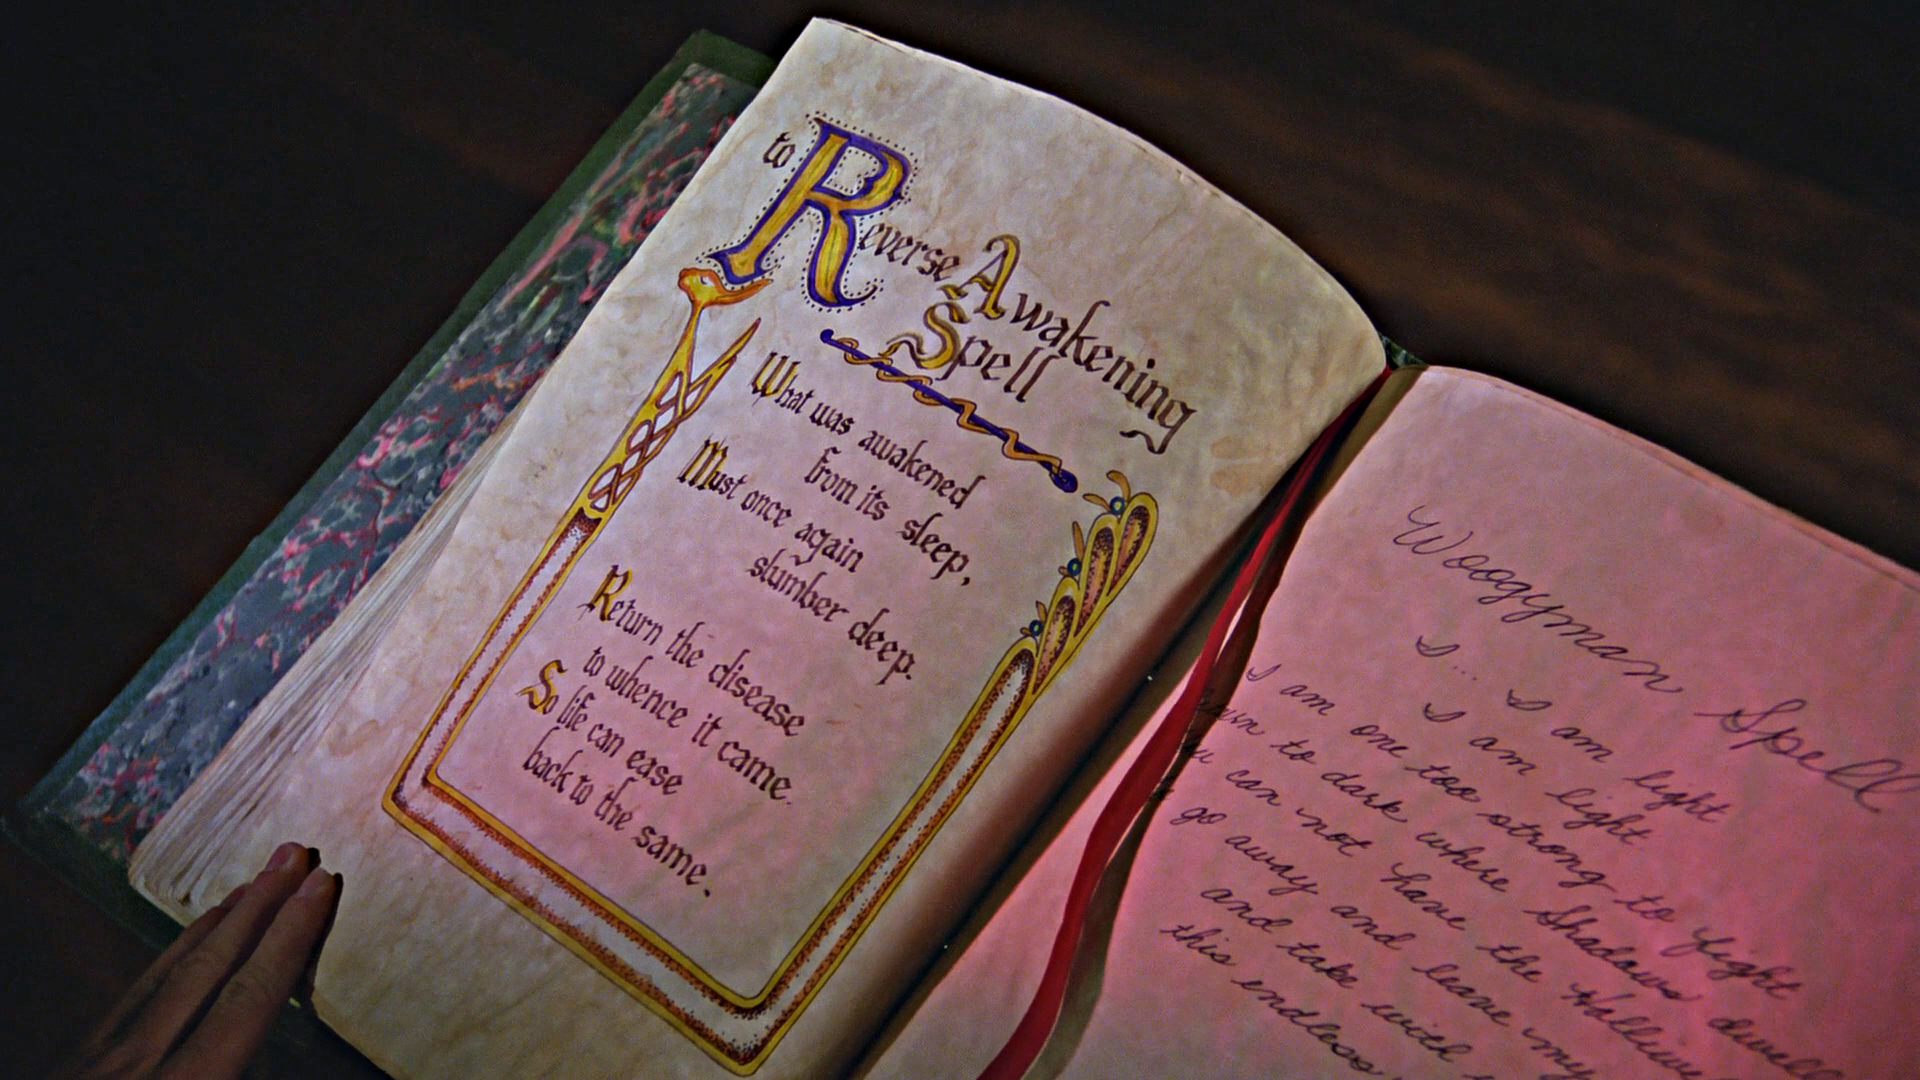 to Reverse Awakening
Spell
What was awakened
from its sleep,
Must once again
slumber deep.
Return the disease
to whence it came.
So life can ease
back to the same.
Woogyman Spell
I... I am light
I am light
I am one too strong to fight
to dark where Shadows dwell
can not have the
go away and leave my
and take with
this endless